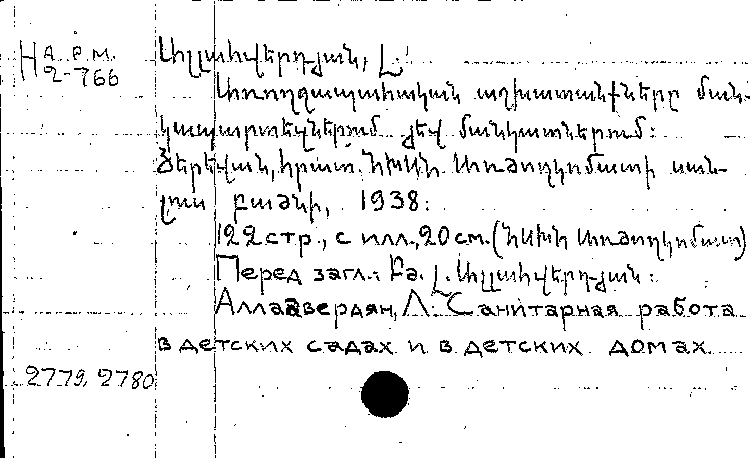 На Р.М. Ալլահվերդյան, Լ.
2-766
Առողջապահական աշխատանքները ման-
կապարտեզներում յեվ մանկատներում:
Յերեվան, հրատ. ՀԽՍՀ Առժողկոմատի սան-
լուս բաժնի, 1938:
122 стр., с илл., 20 см. (ՀՍԽՀ Առժողկոմատ)
Перед загл.: Բժ. Լ. Ալլահվերդյան:
Аллавердян, Л. Санитарная работа
в детских садах и в детских домах
2779, 2780